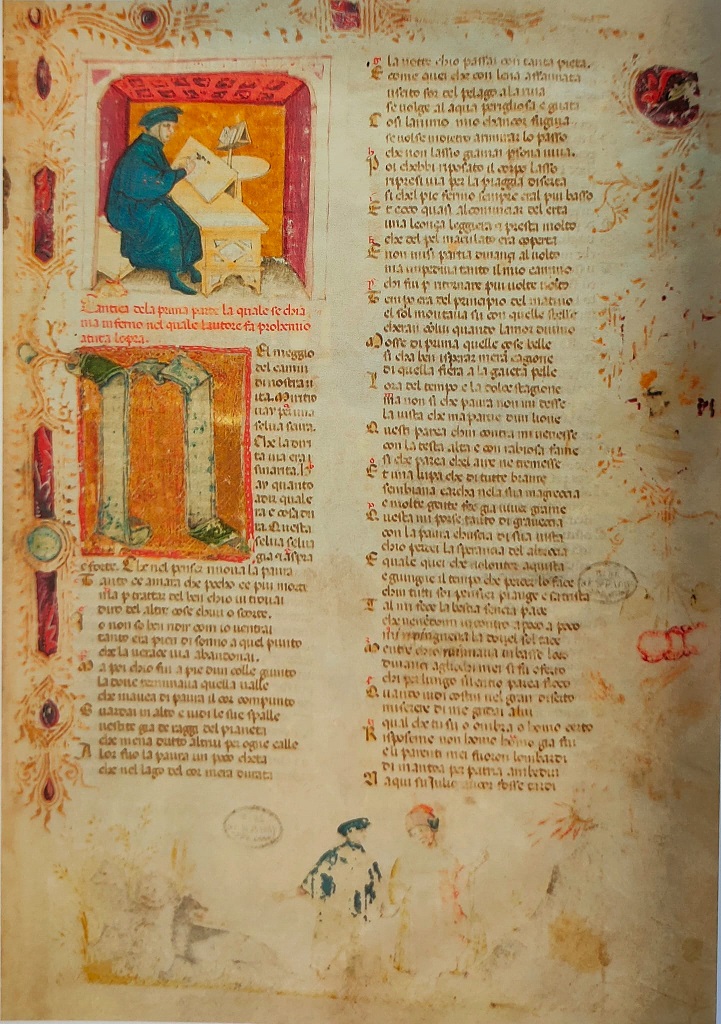 Cantica dela prima parte la quale se chia
ma inferno nel quale lautore fa prohemio
a tuta lopra.
El meggio
del camin
di nostra ui
ta. Mi ritro
uay p una
selua scura.
Che la diri
ta uia era
smarita. h
ay quanto
adir quale
era e cosa du
ra. Questa
selua selua
gia & aspra
e forte. Che nel penser rinoua la paura
Tanto e amara che pocho e piu morte
ma p trattar del ben chio ui trouai
diro del altre cose chui o scorte.
Io non so ben ridir com io uentrai
tanto era pien di sonno a quel punto
che la uerace uia abandonai.
Ma poi chio fui a pie dun colle giunto
la doue terminaua quella ualle
che mauea di paura il cor compunto
Guardai in alto e uidi le sue spalle
uestite gia de raggi del pianeta
che mena dritto altrui per ogne calle
Alor fuo la paura un poco cheta
che nel lago del cor mera durata
la notte chio passai con tanta pieta.
E come quei che con lena affannata
uscito for del pelago ala riua
se uolge al aqua perigliosa e guata
Cosi lanimo mio chancor fugiua
se uolse indietro a rimirar lo passo
che non lasso giamai psona uiua.
Poi chebbi riposato il corpo lasso
ripresi uia per la piaggia diserta
si chel pie fermo sempre eral piu basso
Et ecco quasi al cominciar del erta
una leonça leggiera e prosta molto
che del pel maculato era coperta
E non misi partia dinançi al uolto
ma impediua tanto il mio camino
chi fui p ritornare piu uolte uolto
Tempo era del principio del matino
el sol montaua su con quelle stelle
cheran co lui quanto lamor diuino
Mosse di prima quelle cose belle
si cha ben isperar mera cagione
di quella fiera a la gaieta pelle
Lora del tempo e la dolce stagione
ma non si che paura non mi desse
la uista che ma parue dun lione
Questi parea chui contra mi uenesse
con la testa alta e con rabiosa fame
si che parea chel aire ne tremesse
Et una lupa che di tutte brame
sembiaua carcha nela sua magreccia
e molte gente fe gia uiuer grame
Questa mi porse tanto di graueccia
con la paura chuscia di sua uista
chio perdei la sperança del altecça
E quale quei che uolontier aquista
e giungne il tempo che perder lo face
chin tutti soi pensier piange e satrista
Tal mi fece la bestia sença pace
che uenendom incontro a poco a poco
mi ripingneua la doue l sol tace
Mentre chio ruuinaua in basso loco
dinanci agliochi mei si fu oferto
chi per lungo silentio parea fioco
Quando uidi costui nel gran diserto
miserere di me gridai a lui
qual che tu sii o ombra o homo certo
Risposemi non homo homo gia fui
e li parenti mei furon lombardi
di mantoa per patria ambedui
Naqui su Julio ancor fosse tardi